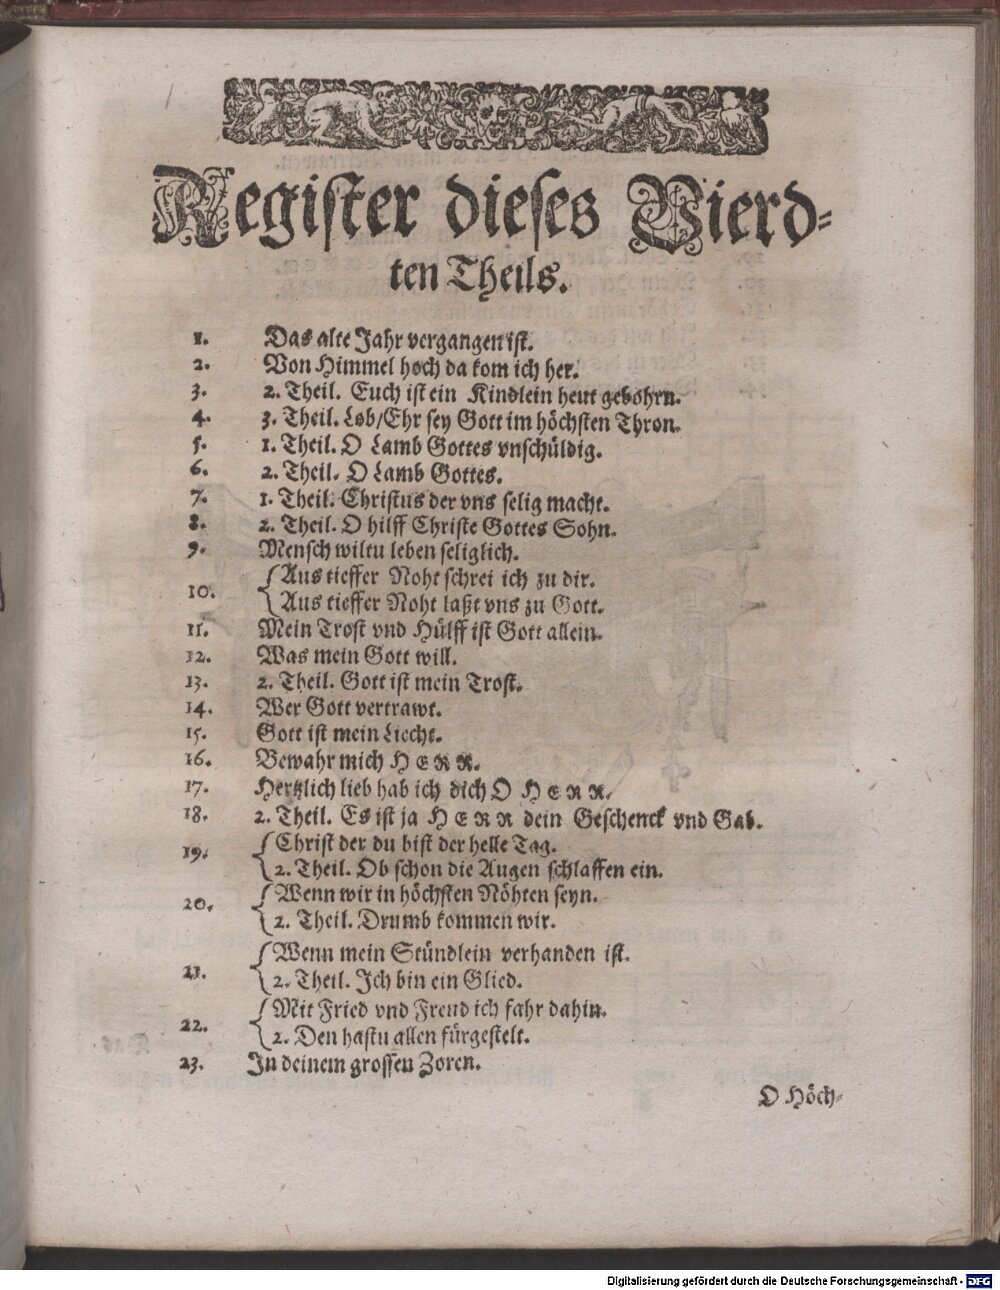 Register dieses Vierd-
ten Theils.
1. Das alte Jahr vergangen ist.
2. Von Himmel hoch da kom ich her.
3. 2. Theil. Euch ist ein Kindlein heut gebohrn.
4. 3. Theil. Lob/Ehr sey Gott im höchsten Thron.
5. 1. Theil. O Lamb Gottes vnschüldig.
6. 2. Theil. O Lamb Gottes.
7. 1. Theil. Christus der vns selig macht.
8. 2. Theil. O hilff Christe Gottes Sohn.
9. Mensch wiltu leben seliglich.
10. Aus tieffer Noht schrei ich zu dir.
Aus tieffer Noht laßt vns zu Gott.
11. Mein Trost vnd Hülff ist Gott allein.
12. Was mein Gott will.
13. 2. Theil. Gott ist mein Trost.
14. Wer Gott vertrawt.
15. Gott ist mein Liecht.
16. Bewahr mich HERR.
17. Hertzlich lieb hab ich dich O HERR.
18. 2. Theil. Es ist ja HERR dein Geschenck vnd Gab.
19. Christ der du bist der helle Tag.
2. Theil. Ob schon die Augen schlaffen ein.
20. Wenn wir in höchsten Nöhten seyn.
2. Theil. Drumb kommen wir.
21. Wenn mein Stündlein verhanden ist.
2. Theil. Ich bin ein Glied.
22. Mit Fried vnd Freud ich fahr dahin.
2. Den hastu allen fürgestelt.
23. In deinem grossen Zoren.
O Höch-
Digitalisierung gefördert durch die Deutsche Forschungsgemeinschaft - DFG